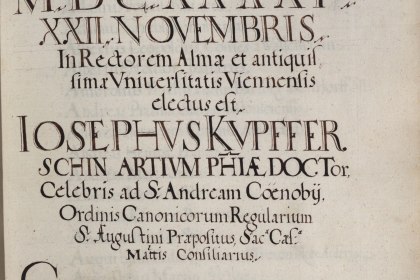 XXII. NOVEMBRIS.
In Rectorem Almæ et antiquis
simæ Vniversitatis Viennensis
electus est
IOSEPHVS KVPFFER
SCHIN ARTIVM P̄HIÆ DOCTor,
Celebris ad S. Andream Cœnobij,
Ordinis Canonicorum Regularium
S. Augustini Præpositus, Sac. Cæs.
Mattis Consiliarius.